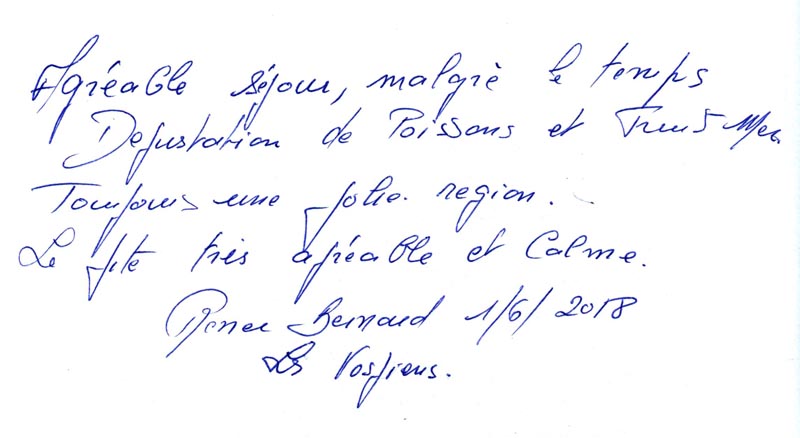 Agréable séjour, malgré le temps
Degustation de Poissons et Fruits Mer
Toujours une jolie region.
Le gite très agréable et Calme.
Bernard 1/6/2018
Les Vosgiens.